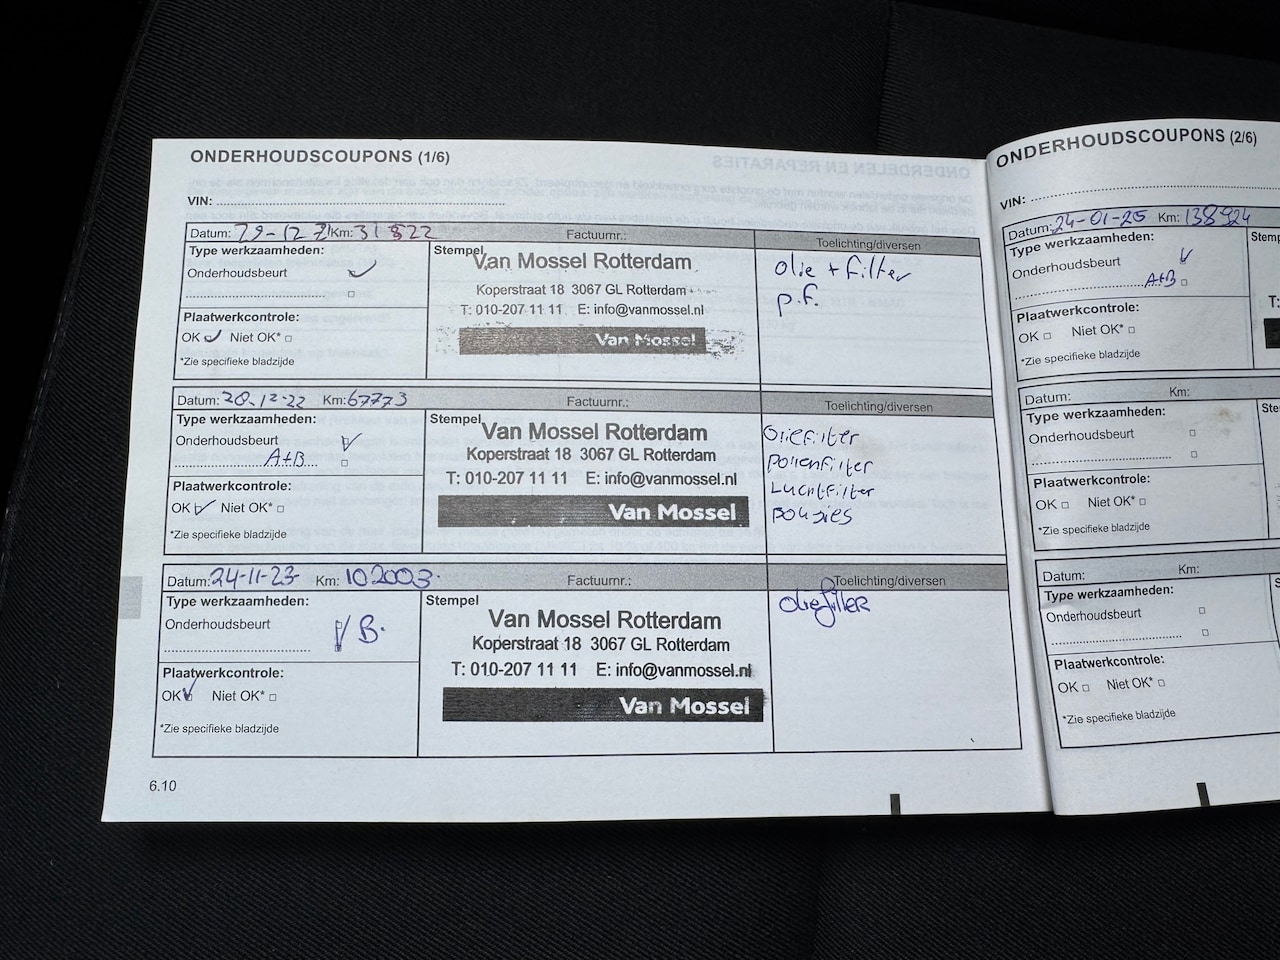 ONDERHOUDSCOUPONS (1/6)
VIN:
Datum: Km: 31822 Factuurnr.: Toelichting/diversen
Type werkzaamheden:
Onderhoudsbeurt
Plaatwerkcontrole:
OK Niet OK*
*Zie specifieke bladzijde
Stempel
Van Mossel Rotterdam
Koperstraat 18 3067 GL Rotterdam
T: 010-207 11 11 E: info@vanmossel.nl
Van Mossel
olie + filter
p.f.
Datum: 20-12-22 Km: 67773 Factuurnr.: Toelichting/diversen
Type werkzaamheden:
Onderhoudsbeurt
A+B
Plaatwerkcontrole:
OK Niet OK*
*Zie specifieke bladzijde
Stempel
Van Mossel Rotterdam
Koperstraat 18 3067 GL Rotterdam
T: 010-207 11 11 E: info@vanmossel.nl
Van Mossel
oliefilter
pollenfilter
Luchtfilter
bougies
Datum: 24-11-23 Km: 102003 Factuurnr.: Toelichting/diversen
Type werkzaamheden:
Onderhoudsbeurt
B.
Plaatwerkcontrole:
OK Niet OK*
*Zie specifieke bladzijde
Stempel
Van Mossel Rotterdam
Koperstraat 18 3067 GL Rotterdam
T: 010-207 11 11 E: info@vanmossel.nl
Van Mossel
oliefilter
6.10
ONDERHOUDSCOUPONS (2/6)
VIN:
Datum: 24-01-25 Km: 138924
Type werkzaamheden:
Onderhoudsbeurt
A+B
Plaatwerkcontrole:
OK Niet OK*
*Zie specifieke bladzijde
T:
Datum: Km:
Type werkzaamheden:
Onderhoudsbeurt
Plaatwerkcontrole:
OK Niet OK*
*Zie specifieke bladzijde
Datum: Km:
Type werkzaamheden:
Onderhoudsbeurt
Plaatwerkcontrole:
OK Niet OK*
*Zie specifieke bladzijde